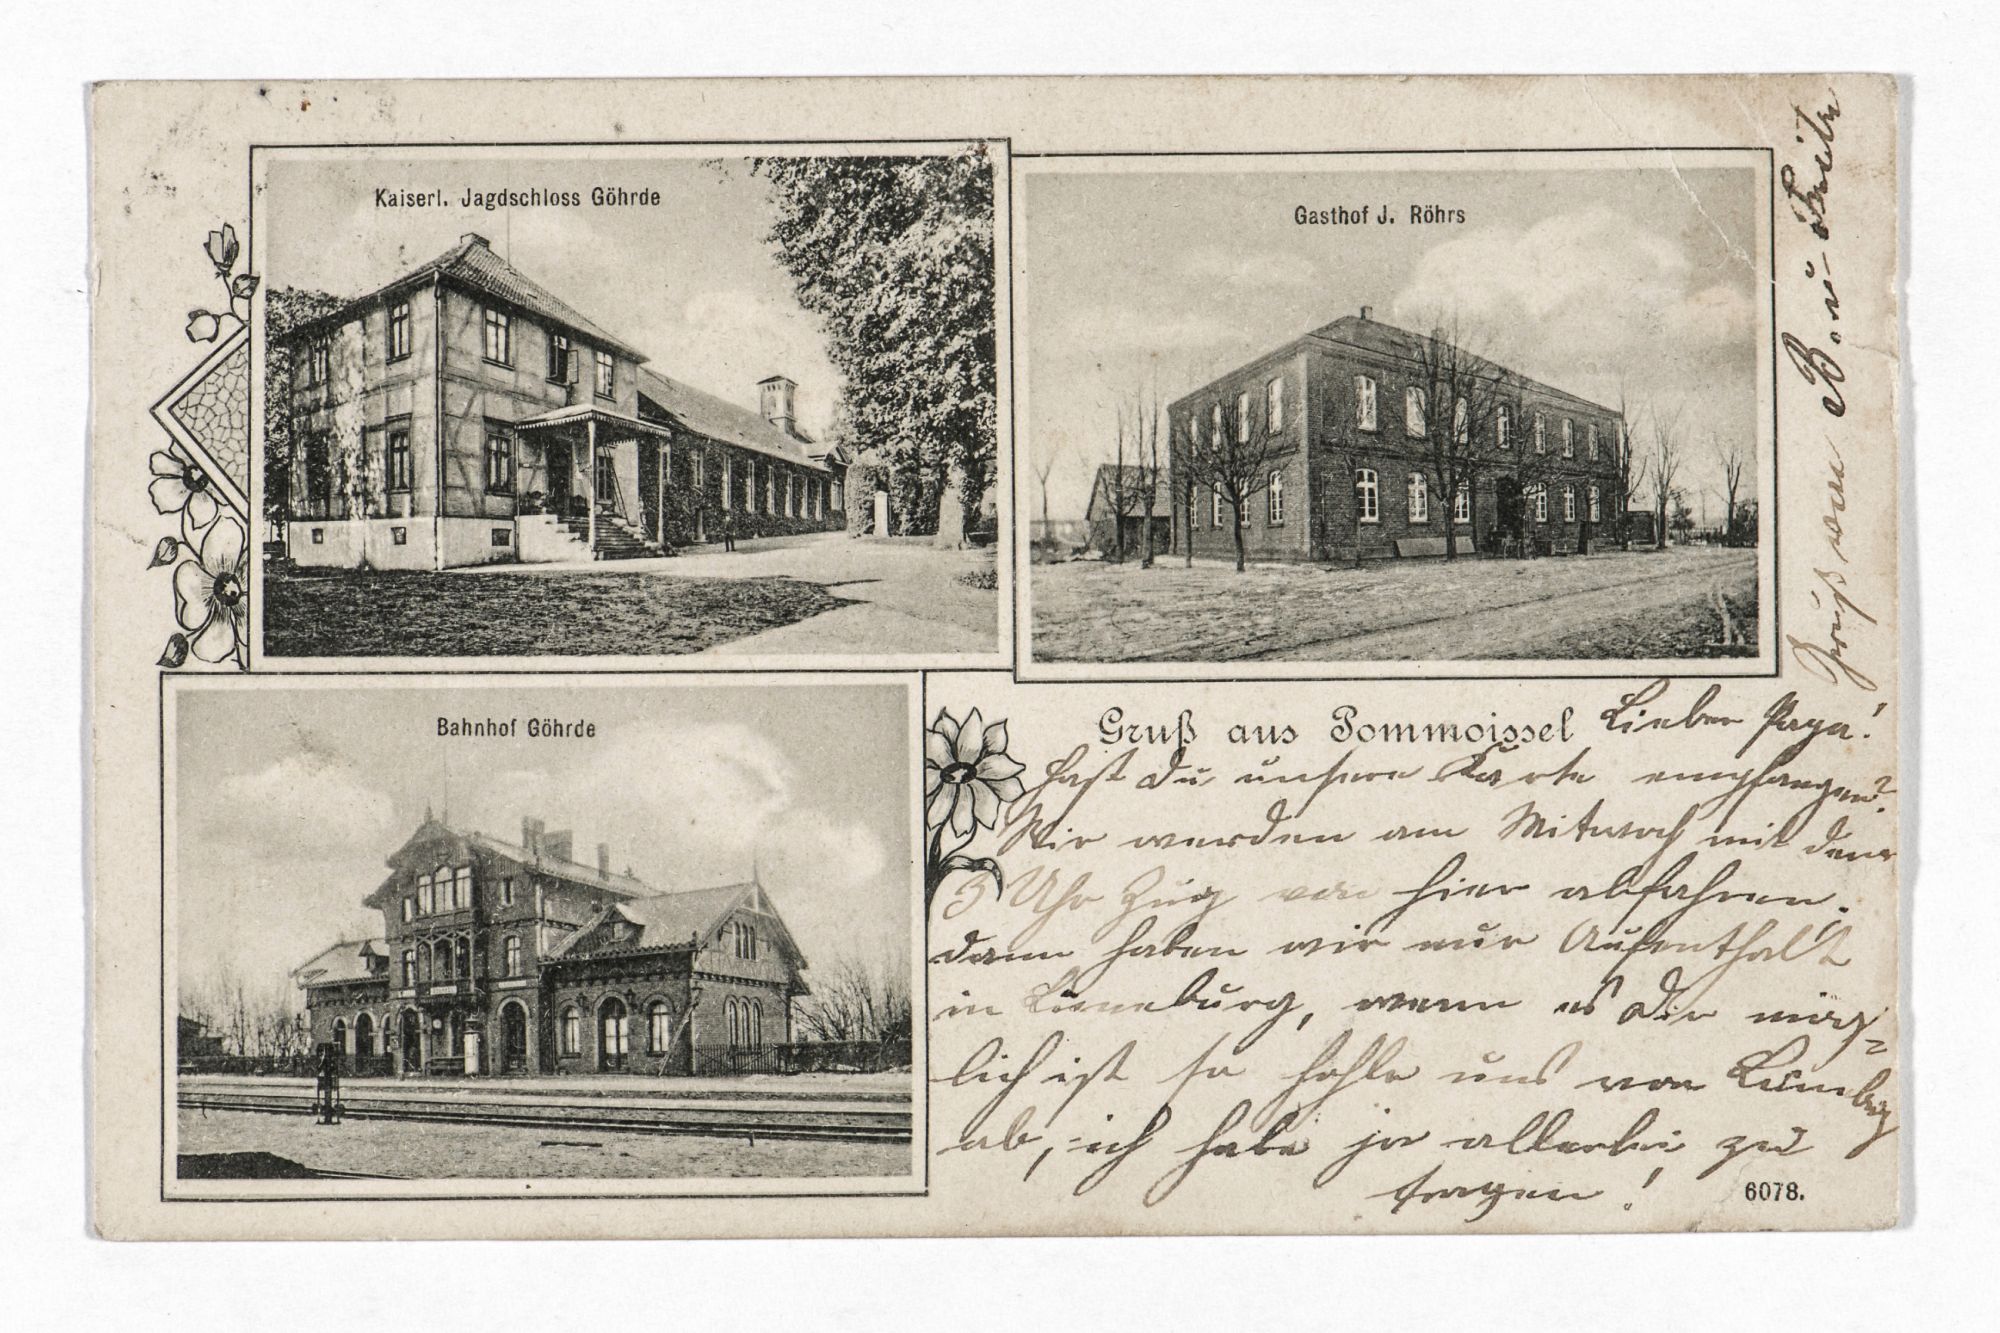 Kaiserl. Jagdschloss Göhrde
Gasthof J. Röhrs
Bahnhof Göhrde
Gruß aus Pommoissel
Lieber Papa!
hast Du unsere Karte empfangen?
Wir werden am Mitwoch mit dem
3 Uhr Zug von hier abfahren.
dann haben wir nur Aufenthalt
in Lüneburg, wenn es Dir mög-
lich ist so hohle uns von Lünebg
ab, ich habe ja allerlei zu
tragen!
6078.
Gruß von